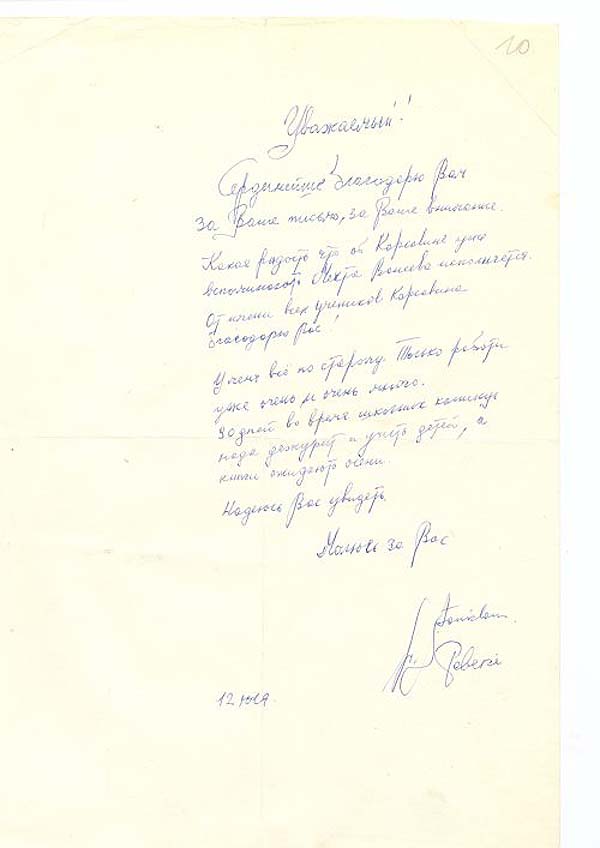 10
Уважаемый!
Сердечнейше благодарю Вас
за Ваше письмо, за Ваше внимание.
Какая радость что об Карсавине уже
вспоминают. Мечта Ванеева исполняется.
От имени всех учеников Карсавина
благодарю Вас!
У меня всё по старому. Только работи
уже очень и очень много.
30 дней во время школьних каникул
нада дежурит и учить детей, а
книги ожидають осени.
Надеюсь Вас увидеть.
Молюсь за Вас
Stanislav
12 июля